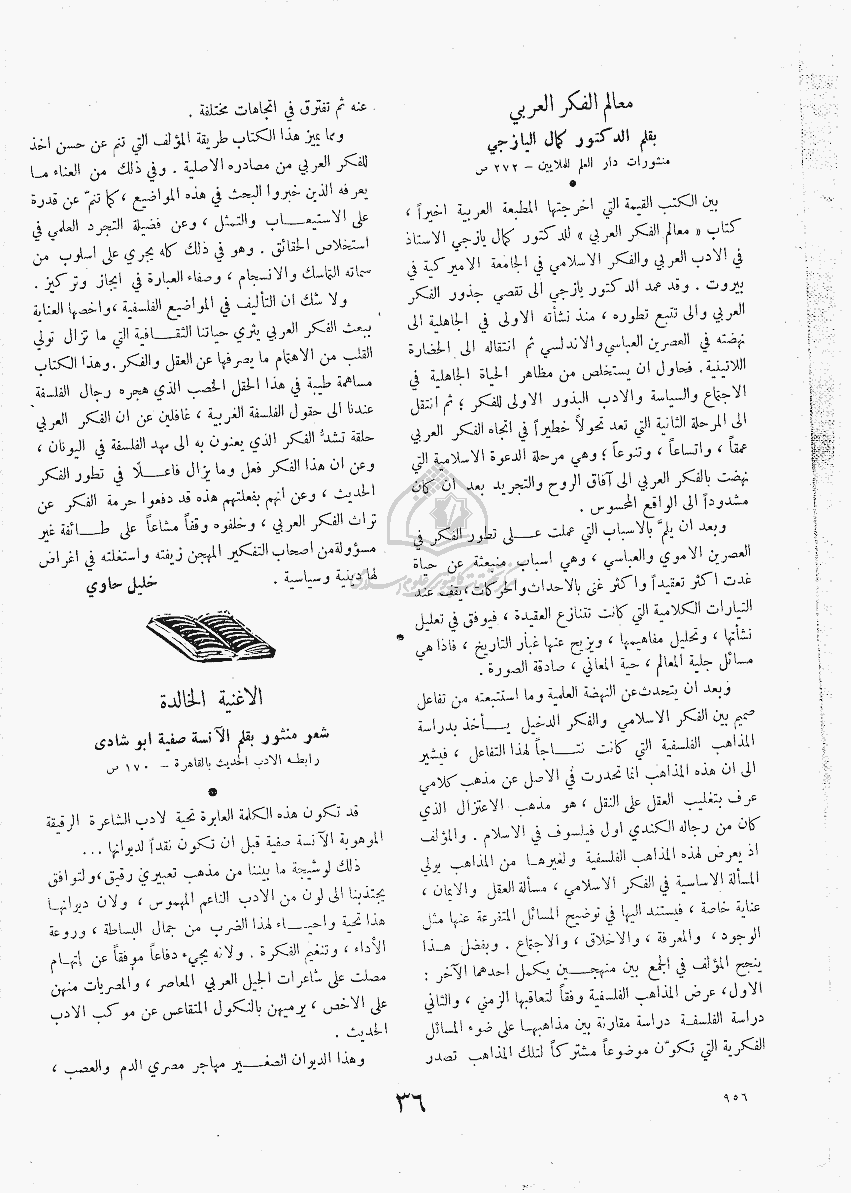 معالم الفكر العربي
بقلم الدكتور كمال اليازجي
منشورات دار العلم للملايين – ٢٧٢ ص
بين الكتب القيمة التي اخرجتها المطبعة العربية اخيراً ،
كتاب « معالم الفكر العربي » للدكتور كمال يازجي الاستاذ
في الادب العربي والفكر الاسلامي في الجامعة الاميركية في
بيروت . وقد عمد الدكتور يازجي الى تقصي جذور الفكر
العربي والى تتبع تطوره ، منذ نشأته الاولى في الجاهلية الى
نهضته في العصرين العباسي والاندلسي ثم انتقاله الى الحضارة
اللاتينية . فحاول ان يستخلص من مظاهر الحياة الجاهلية في
الاجتماع والسياسة والادب البذور الاولى للفكر ؛ ثم انتقل
الى المرحلة الثانية التي تعد تحولاً خطيراً في اتجاه الفكر العربي
عمقاً ، واتساعاً ، وتنوعاً ؛ وهي مرحلة الدعوة الاسلامية التي
نهضت بالفكر العربي الى آفاق الروح والتجريد بعد ان كان
مشدوداً الى الواقع المحسوس .
وبعد ان يلمّ بالاسباب التي عملت عـلى تطور الفكر في
العصرين الاموي والعباسي ، وهي اسباب منبعثة عن حياة
غدت اكثر تعقيداً واكثر غنى بالاحداث والحركات، يقف عند
التيارات الكلامية التي كانت تتنازع العقيدة ، فيوفق في تعليل
نشأتها ، وتحليل مفاهيمها ، ويزيح عنها غبار التاريخ ، فاذا هي
مسائل جلية المعالم ، حية المعاني ، صادقة الصورة .
وبعد ان يتحدث عن النهضة العلمية وما استتبعته من تفاعل
صميم بين الفكر الاسلامي والفكر الدخيل يـأخذ بدراسة
المذاهب الفلسفية التي كانت نتـاجاً لهذا التفاعل ، فيشير
الى ان هذه المذاهب انما تحدرت في الاصل عن مذهب كلامي
عرف بتغليب العقل على النقل ، هو مذهب الاعتزال الذي
كان من رجاله الكندي اول فيلسوف في الاسلام . والمؤلف
اذ يعرض لهذه المذاهب الفلسفية ولغيرهـا من المذاهب يولي
المسألة الاساسية في الفكر الاسلامي ، مسألة العقل والايمان ،
عناية خاصة ، فيستند اليها في توضيح المسائل المتفرعة عنها مثل
الوجود ، والمعرفة ، والاخلاق ، والاجتماع . وبفضل هـذا
ينجح المؤلف في الجمع بين منهجـين يكمل احدهما الآخر :
الاول ، عرض المذاهب الفلسفية وفقاً لتعاقبها الزمني ، والثاني
دراسة الفلسفـة دراسة مقارنة بين مذاهبهـا على ضوء المسائل
الفكرية التي تكوّن موضوعاً مشتركاً لتلك المذاهب تصدر
عنه ثم تفترق في اتجاهات مختلفة .
ومما يميز هذا الكتاب طريقة المؤلف التي تنم عن حسن اخذ
للفكر العربي من مصادره الاصلية . وفي ذلك من العناء مـا
يعرفه الذين خبروا البحث في هذه المواضيع ، كما تنمّ عن قدرة
على الاستيعـاب والتمثل ، وعن فضيلة التجرد العلمي في
استخلاص الحقائق . وهو في ذلك كله يجري على اسلوب من
سماته التماسك والانسجام ، وصفاء العبارة في ايجاز وتركيز .
ولا شك ان التأليف في المواضيع الفلسفية ، واخصها العناية
ببعث الفكر العربي يثري حياتنا الثقـافية التي ما تزال تولي
القلب من الاهتمام ما يصرفها عن العقل والفكر . وهذا الكتاب
مساهمة طيبة في هذا الحقل الخصب الذي هجره رجال الفلسفة
عندنا الى حقول الفلسفة الغربية ، غافلين عن ان الفكر العربي
حلقة تشدُّ الفكر الذي يعنون به الى مهد الفلسفة في اليونان ،
وعن ان هذا الفكر فعل وما يزال فاعـلًا في تطور الفكر
الحديث ، وعن انهم بفعلتهم هذه قد دفعوا حرمة الفكر عن
تراث الفكر العربي ، وخلفوه وقفاً مشاعاً على طـائفة غير
مسؤولة من اصحاب التفكير المهجن زيفته واستغلته في اغراض
لها دينية وسياسية . خليل حاوي
الاغنية الخالدة
شعر منثور بقلم الآنسة صفية ابو شادى
رابطة الادب الحديث بالقاهرة – ١٧٠ ص
قد تكون هذه الكلمة العابرة تحية لادب الشاعرة الرقيقة
الموهوبة الآنسة صفية قبل ان تكون نقداً لديوانها ...
ذلك لوشيجة ما بيننا من مذهب تعبيري رقيق ، ولتوافق
يجتذبنا الى لون من الادب الناعم المهموس ، ولان ديوانهـا
هذا تحية واحيـاء لهذا الضرب من جمال البساطة ، وروعة
الأداء ، وتنغيم الفكرة . ولانه يجيء دفاعاً موفقاً عن إتهـام
مصلت على شاعرات الجيل العربي المعاصر ، والمصريات منهن
على الاخص ، يرميهن بالنكول المتقاعس عن موكب الادب
الحديث .
وهذا الديوان الصغـير مهاجر مصري الدم والعصب ،
٣٦
٩٥٦